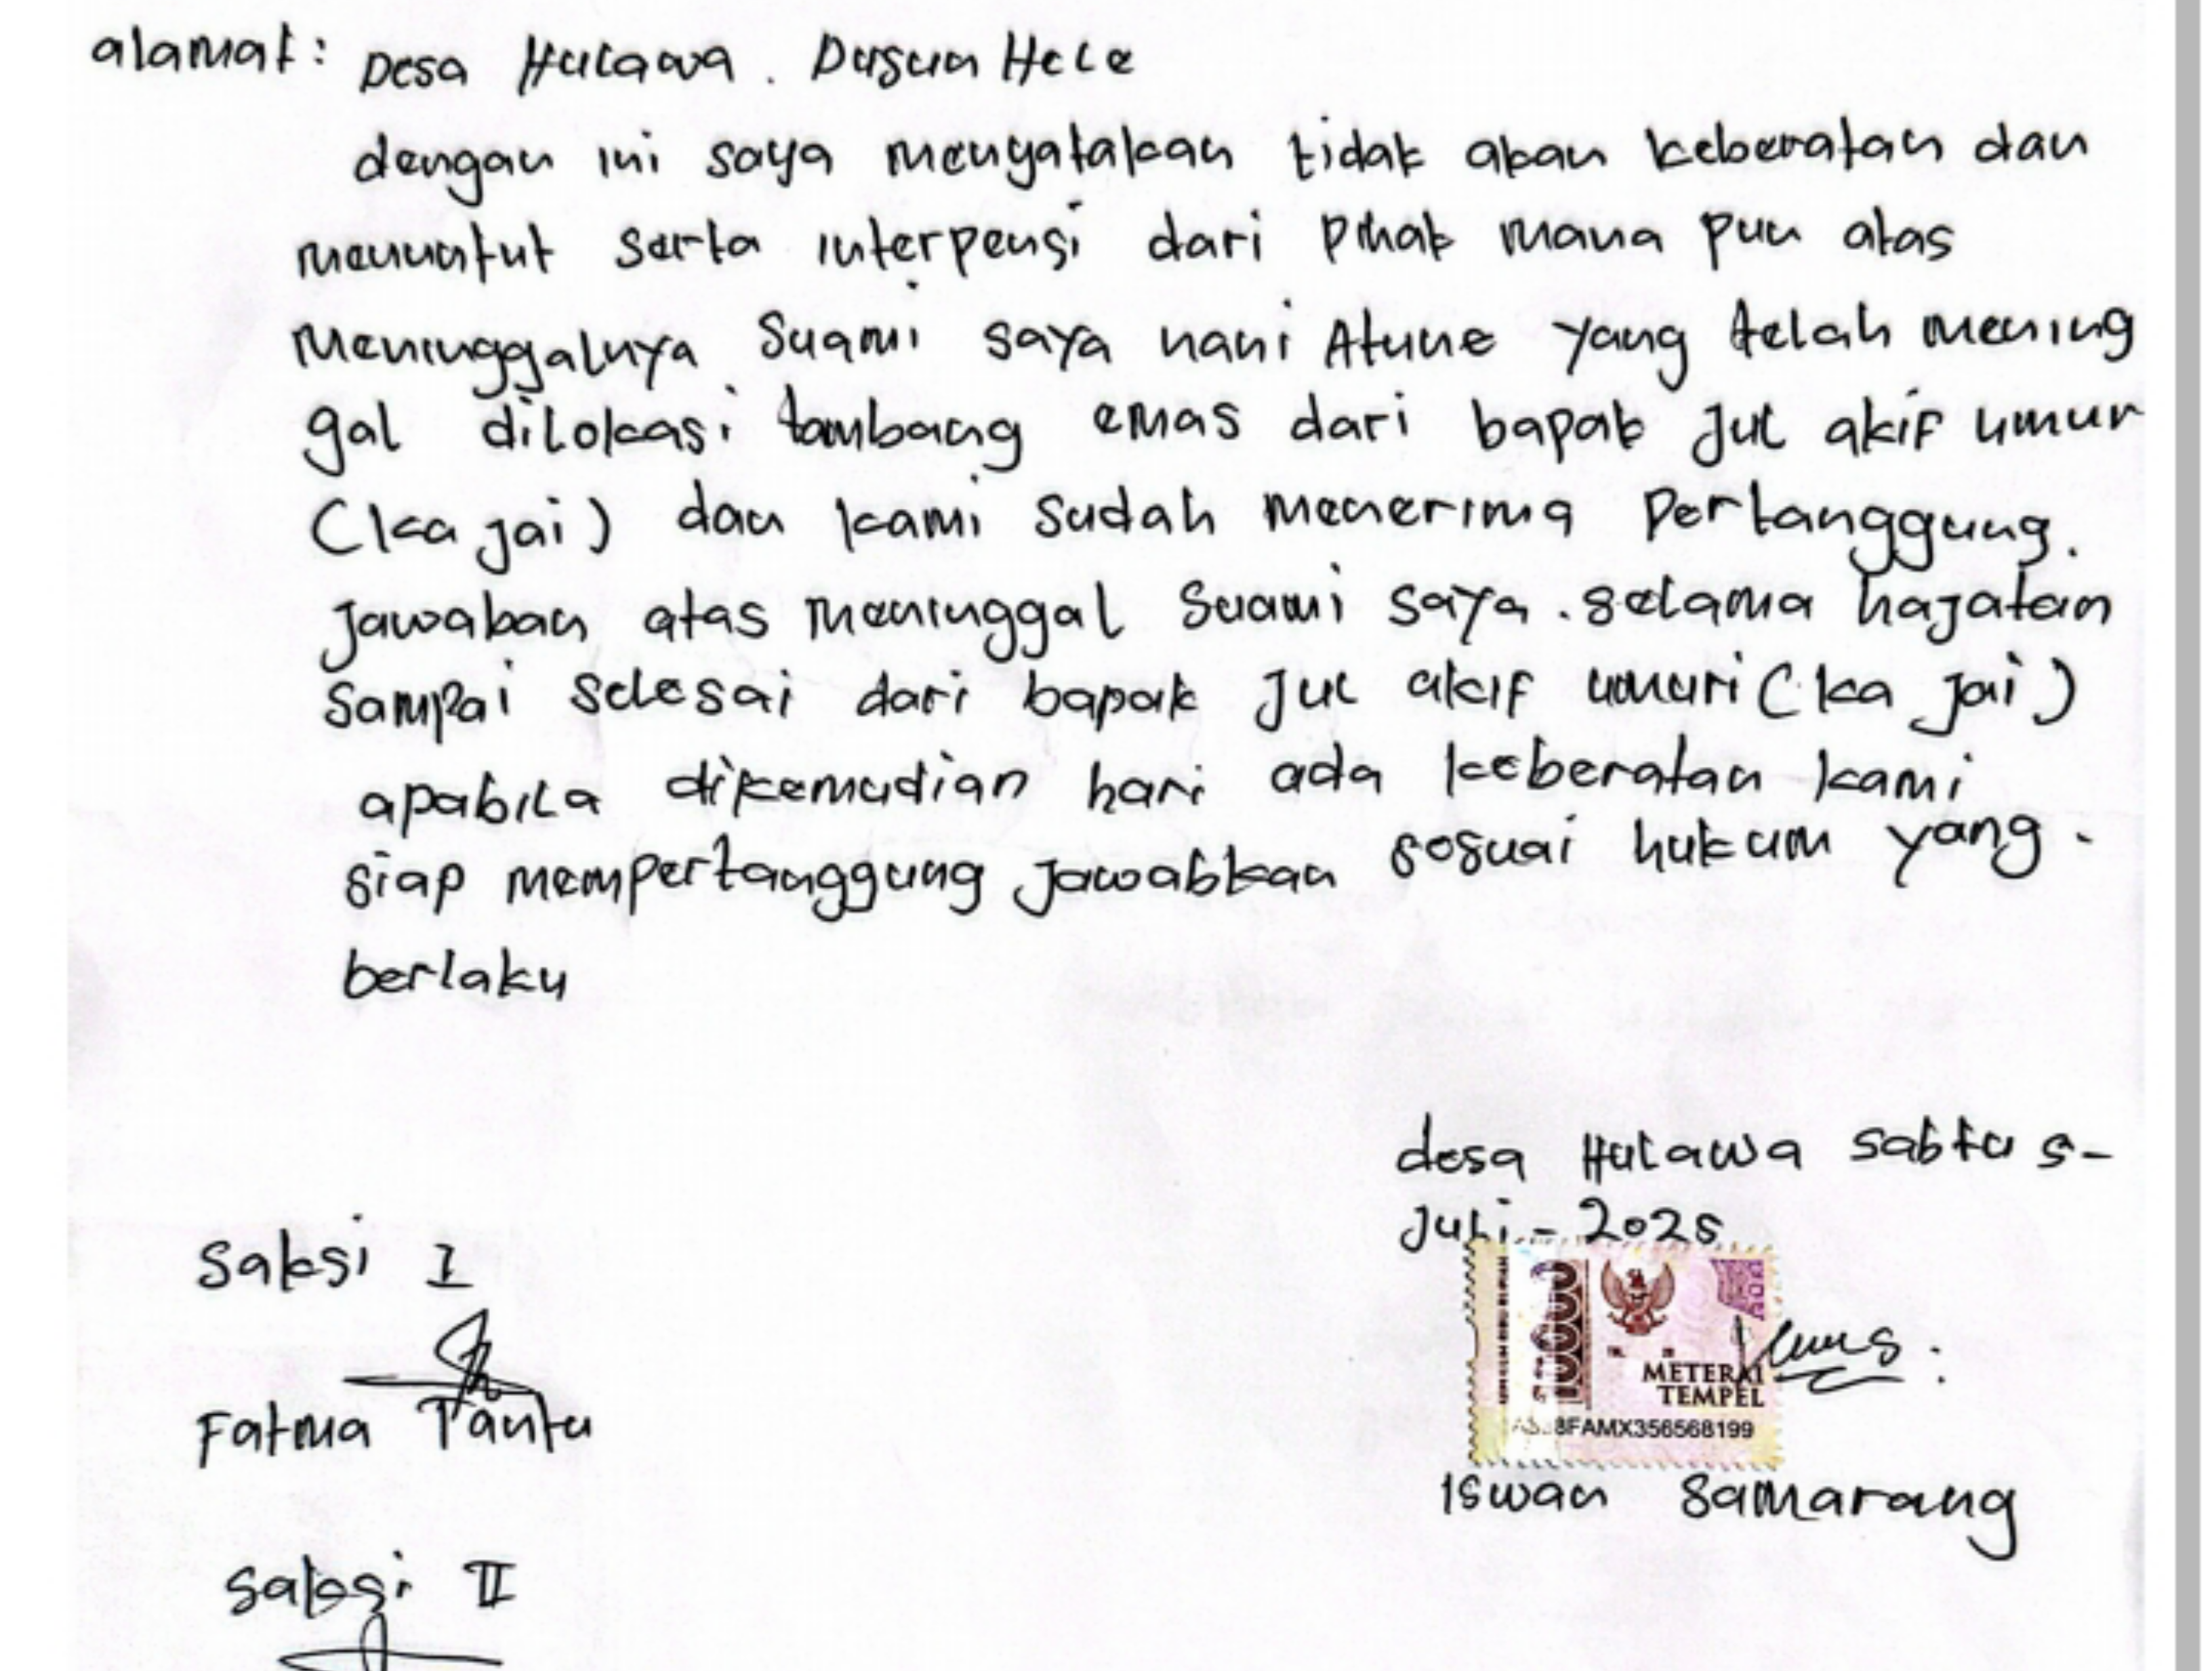 alamat: Desa Hulawa. Dusun Hele
dengan ini saya menyatakan tidak akan keberatan dan
menuntut serta interpensi dari pihak mana pun atas
Meninggalnya Suami saya nani Atune yang telah mening
gal dilokasi tambang emas dari bapak Jul akif umur
(ka jai) dan kami sudah menerima Pertanggung.
Jawaban atas meninggal Suami saya. selama hajatan
sampai selesai dari bapak Jul akif umuri (ka jai)
apabila dikemudian hari ada keberatan kami
siap mempertanggung Jawabkan sosuai hukum yang.
berlaku
desa Hulawa sabtu 5-
Juli - 2025
10000
METERAI
TEMPEL
8FAMX356568199
Iswan Samarang
Saksi I
Fatma Tantu
Saksi II